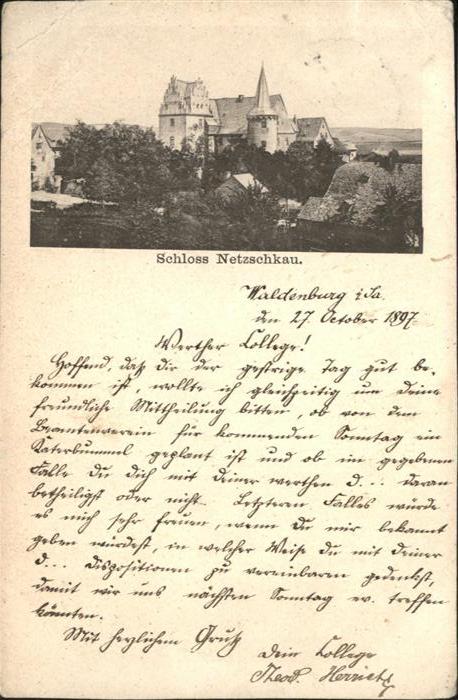 Schloss Netzschkau.
Waldenburg i/Sa.
den 27. October 1897.
Werther College!
Hoffend, daß dir der gestrige Tag gut be-
kommen ist, wollte ich gleichzeitig um deine
freundliche Mittheilung bitten, ob von dem
Beamtenverein für kommenden Sonntag ein
Katerbummel geplant ist und ob im gegebenen
Falle du dich mit deiner werthen d... daran
betheiligst oder nicht. Letzteren Falles würde
es mich sehr freuen, wenn du mir bekannt
geben würdest, in welcher Weise du mit deiner
d... dispositionen zu vereinbaren gedenkst,
damit wir uns nächsten Sonntag ev. treffen
könnten.
Mit herzlichem Gruß
Dein College
Theod.